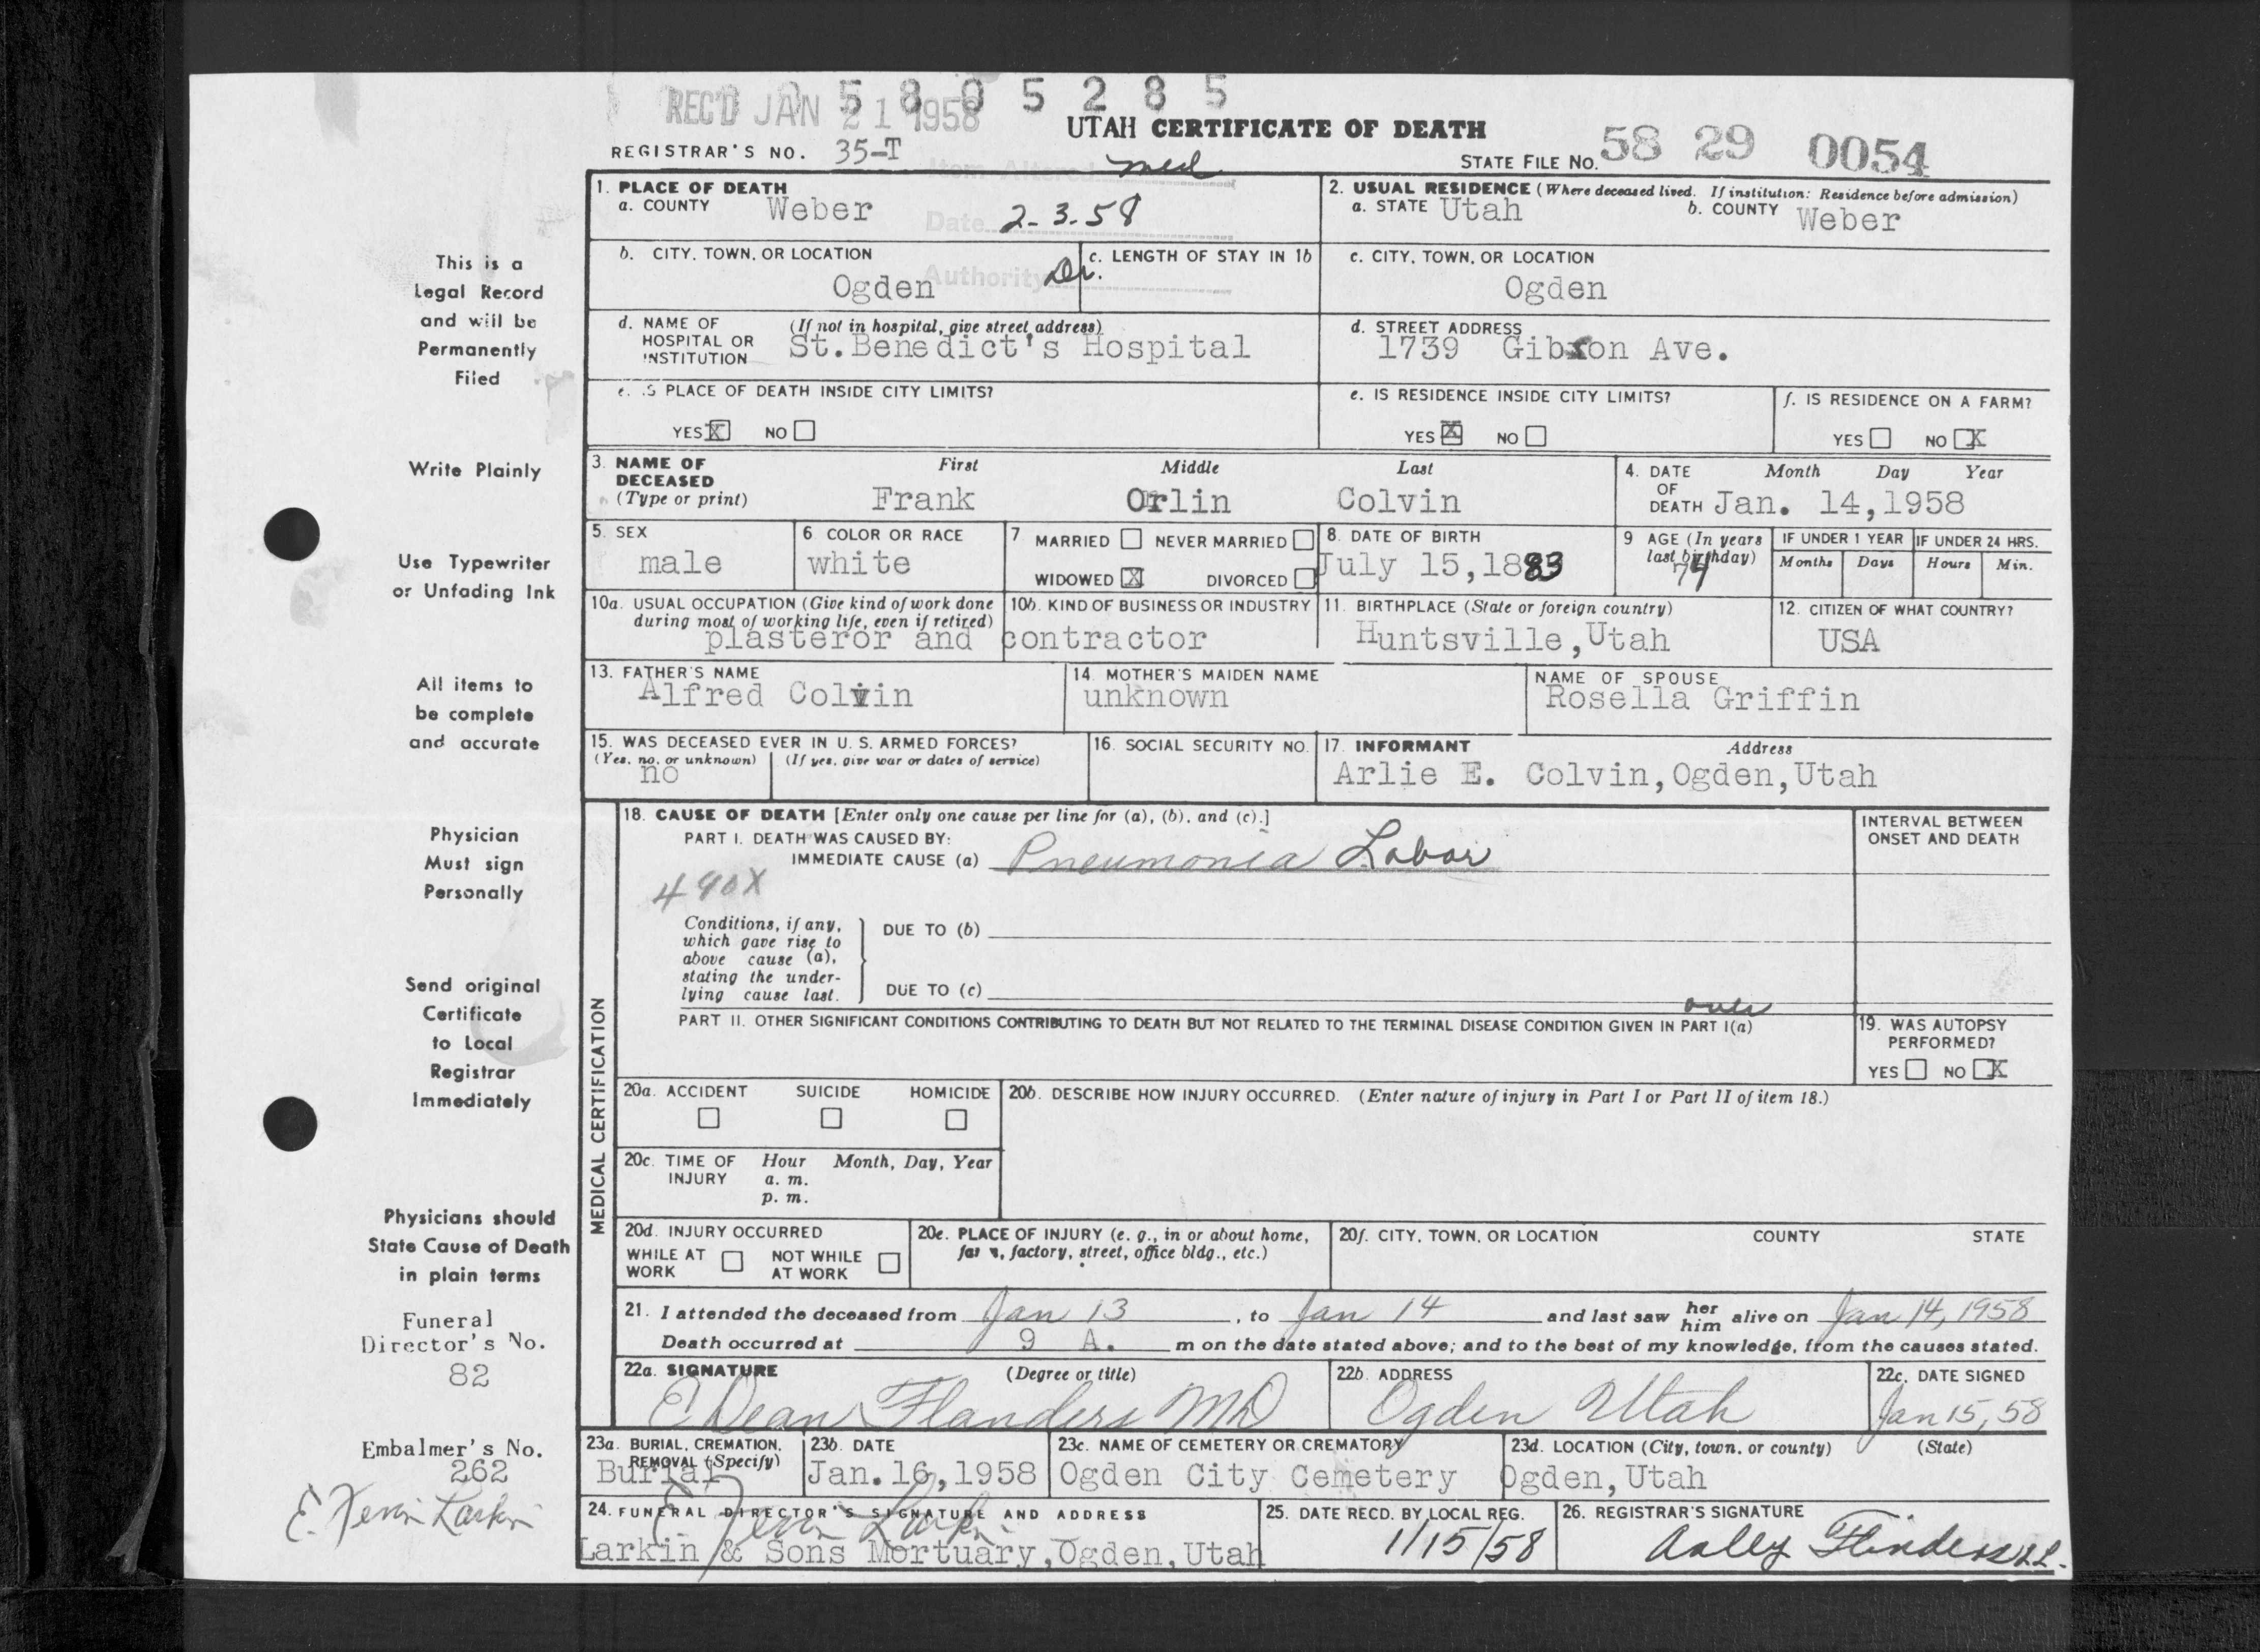 5 8 0 5 2 8 5
REC'D JAN 21 1958
UTAH CERTIFICATE OF DEATH
REGISTRAR'S NO. 35-T
STATE FILE NO. 58 29 0054
Item Altered med
1. PLACE OF DEATH
a. COUNTY Weber
Date 2-3-58
2. USUAL RESIDENCE (Where deceased lived. If institution: Residence before admission)
a. STATE Utah b. COUNTY Weber
b. CITY, TOWN, OR LOCATION
Ogden
Authority Dr.
c. LENGTH OF STAY IN 1b
c. CITY, TOWN, OR LOCATION
Ogden
d. NAME OF HOSPITAL OR INSTITUTION (If not in hospital, give street address)
St.Benedict's Hospital
d. STREET ADDRESS
1739 Gibson Ave.
e. IS PLACE OF DEATH INSIDE CITY LIMITS?
YES X NO
e. IS RESIDENCE INSIDE CITY LIMITS?
YES X NO
f. IS RESIDENCE ON A FARM?
YES NO X
3. NAME OF DECEASED (Type or print)
First Middle Last
Frank Orlin Colvin
4. DATE OF DEATH Month Day Year
Jan. 14,1958
5. SEX
male
6 COLOR OR RACE
white
7 MARRIED NEVER MARRIED
WIDOWED X DIVORCED
8. DATE OF BIRTH
July 15,1883
9 AGE (In years last birthday)
74
IF UNDER 1 YEAR
Months Days
IF UNDER 24 HRS.
Hours Min.
10a. USUAL OCCUPATION (Give kind of work done during most of working life, even if retired)
10b. KIND OF BUSINESS OR INDUSTRY
plasteror and contractor
11. BIRTHPLACE (State or foreign country)
Huntsville,Utah
12. CITIZEN OF WHAT COUNTRY?
USA
13. FATHER'S NAME
Alfred Colvin
14. MOTHER'S MAIDEN NAME
unknown
NAME OF SPOUSE
Rosella Griffin
15. WAS DECEASED EVER IN U. S. ARMED FORCES?
(Yes, no, or unknown) (If yes, give war or dates of service)
no
16. SOCIAL SECURITY NO.
17. INFORMANT Address
Arlie E. Colvin,Ogden,Utah
MEDICAL CERTIFICATION
18. CAUSE OF DEATH [Enter only one cause per line for (a), (b), and (c).]
INTERVAL BETWEEN ONSET AND DEATH
PART I. DEATH WAS CAUSED BY:
IMMEDIATE CAUSE (a) Pneumonia Lobar
490X
Conditions, if any, which gave rise to above cause (a), stating the underlying cause last.
DUE TO (b)
DUE TO (c)
over
PART II. OTHER SIGNIFICANT CONDITIONS CONTRIBUTING TO DEATH BUT NOT RELATED TO THE TERMINAL DISEASE CONDITION GIVEN IN PART I(a)
19. WAS AUTOPSY PERFORMED?
YES NO X
20a. ACCIDENT SUICIDE HOMICIDE
20b. DESCRIBE HOW INJURY OCCURRED. (Enter nature of injury in Part I or Part II of item 18.)
20c. TIME OF INJURY Hour Month, Day, Year
a. m.
p. m.
20d. INJURY OCCURRED
WHILE AT WORK NOT WHILE AT WORK
20e. PLACE OF INJURY (e. g., in or about home, farm, factory, street, office bldg., etc.)
20f. CITY, TOWN, OR LOCATION COUNTY STATE
21. I attended the deceased from Jan 13, to Jan 14 and last saw her him alive on Jan 14, 1958
Death occurred at 9 A. m on the date stated above; and to the best of my knowledge, from the causes stated.
22a. SIGNATURE (Degree or title)
E Dean Flanders MD
22b. ADDRESS
Ogden Utah
22c. DATE SIGNED
Jan 15, 58
23a. BURIAL, CREMATION, REMOVAL (Specify)
Burial
23b. DATE
Jan.16,1958
23c. NAME OF CEMETERY OR CREMATORY
Ogden City Cemetery
23d. LOCATION (City, town, or county) (State)
Ogden,Utah
24. FUNERAL DIRECTOR'S SIGNATURE AND ADDRESS
E. Kevin Larkin
Larkin & Sons Mortuary,Ogden,Utah
25. DATE RECD. BY LOCAL REG.
1/15/58
26. REGISTRAR'S SIGNATURE
Flinders
This is a
Legal Record
and will be
Permanently
Filed
Write Plainly
Use Typewriter
or Unfading Ink
All items to
be complete
and accurate
Physician
Must sign
Personally
Send original
Certificate
to Local
Registrar
Immediately
Physicians should
State Cause of Death
in plain terms
Funeral
Director's No.
82
Embalmer's No.
262
E. Kevin Larkin